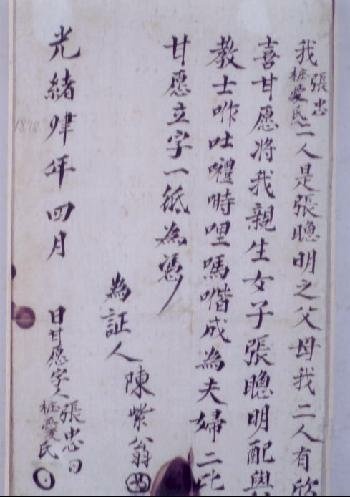 我張忠愛氏二人是張聰明之父母我二人有欣
喜甘愿將我親生女子張聰明配與
教士咋吐時哩嗎喈成為夫婦二比
甘愿立字一紙為憑
為証人陳紫翁
光緒肆年四月 日甘愿字人張忠愛氏
1878